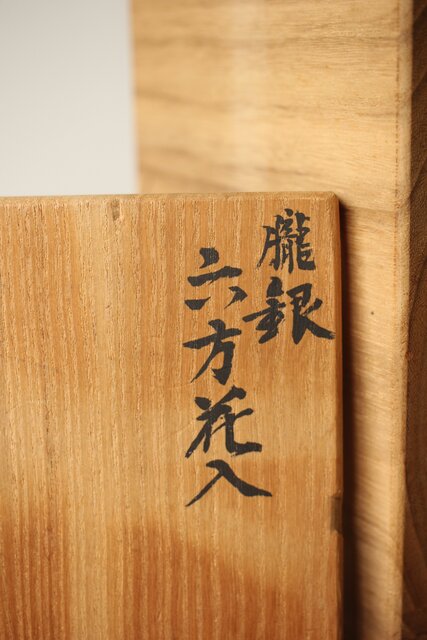 朧銀
六方花入